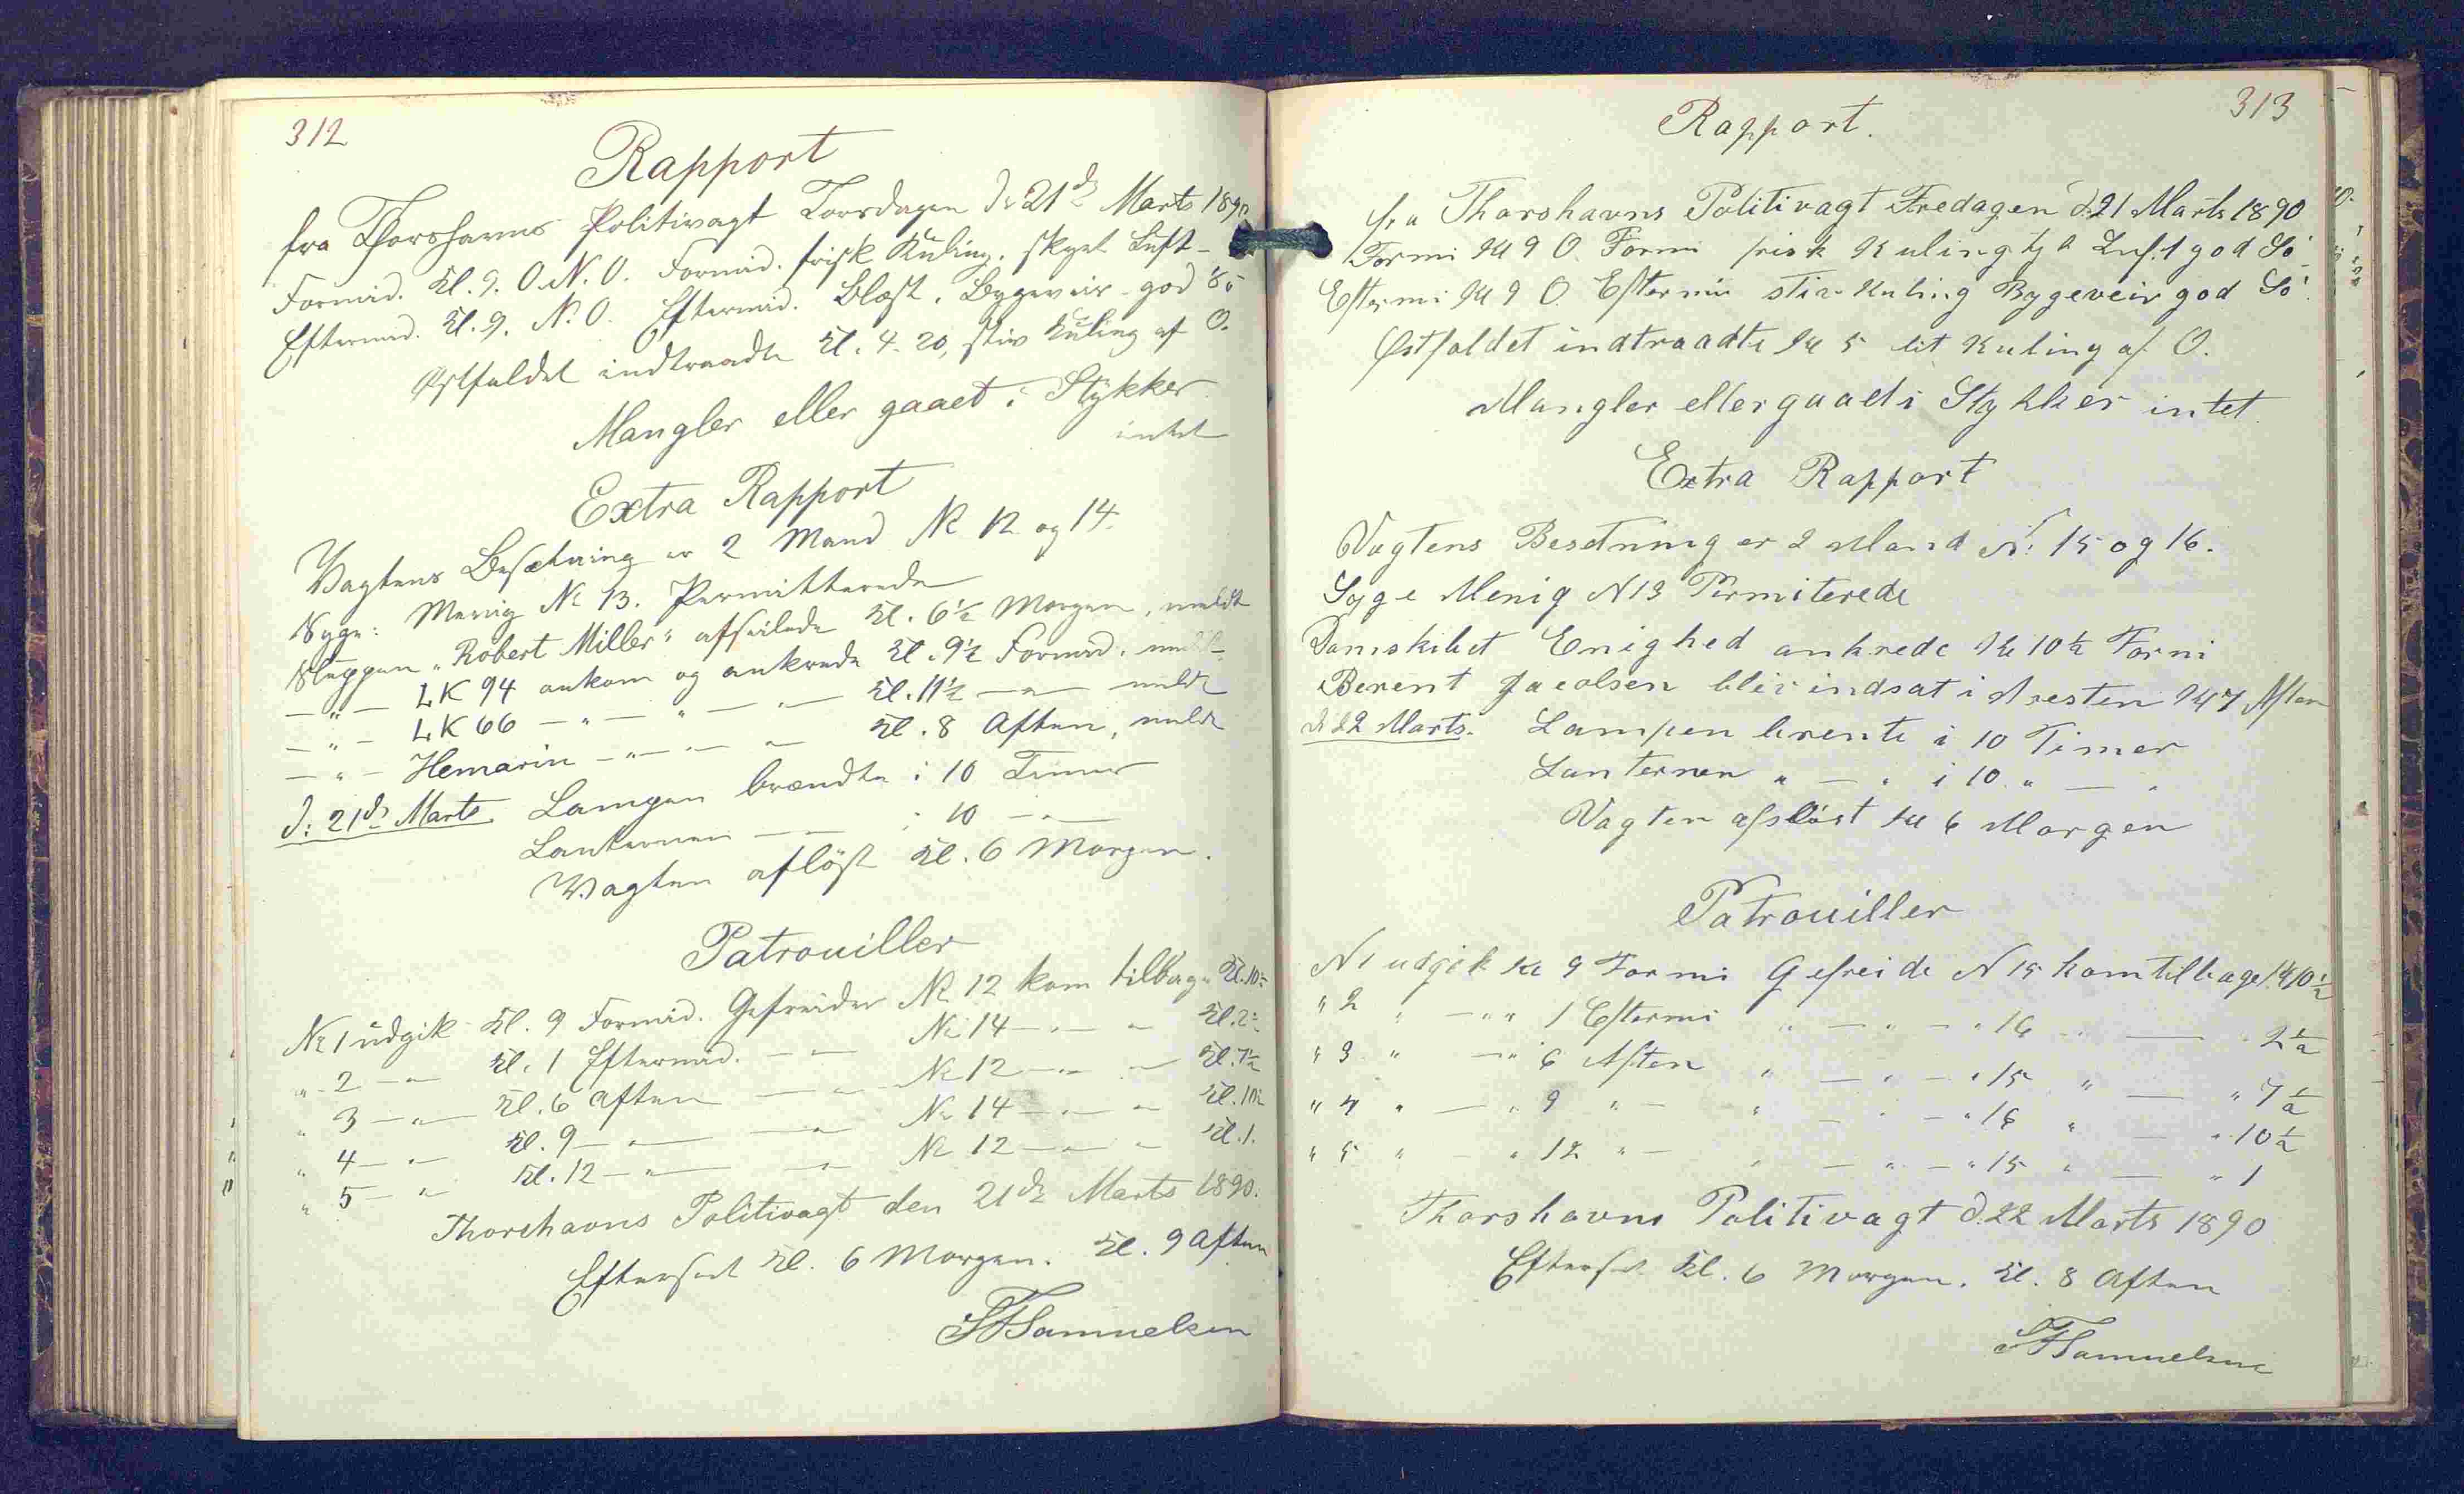 312
Rapport
fra Thorshavns Politivagt Torsdagen d. 21de Marts 1890
Formid. Kl. 9. O.N.O. Formid. frisk Kuling, skyet Luft
Eftermid. Kl. 9. N.O. Eftermid. Blæst, Bygeveir god Sö
Østfaldet indtraadte Kl. 4.20, stiv Kuling af O.
Mangler eller gaaet i Stykker
intet
Extra Rapport
Vagtens Besætning er 2 Mand № 12 og 14.
Syge: Menig № 13. Permitterede
Sluppen "Robert Miller" afseilede Kl. 6½ Morgen, meldt
— " — LK 94 ankom og ankrede Kl. 9½ Formid. meldt
— " — LK 66 — " — " — " — Kl. 11½ — " — meldt
— " — Hemarin — " — " — " Kl. 8 Aften, meldt
d: 21de Marts. Lampen brændte i 10 Timer
Lanternen — " — i 10 — " —
Vagten aflöst Kl. 6 Morgen.
Patrouiller
№ 1 udgik Kl. 9 Formid. Gefreider № 12 kom tilbage Kl. 10½
" 2 — " — Kl. 1 Eftermid. — " — № 14 — " — " — Kl. 2½
" 3 — " — Kl. 6 Aften — " — № 12 — " — " — Kl. 7½
" 4 — " — Kl. 9 — " — — " — № 14 — " — " — Kl. 10½
" 5 — " — Kl. 12 — " — — " — № 12 — " — " — Kl. 1.
Thorshavns Politivagt den 21de Marts 1890.
Efterseet Kl. 6 Morgen. Kl. 9 Aften
Samuelsen
313
Rapport.
fra Thorshavns Politivagt Fredagen d. 21 Marts 1890
Formi Kl 9 O. Formi frisk Kuling Luft god Sö
Eftermi Kl 9 O. Eftermi stiv Kuling Bygeveir god Sö
Østfaldet indtraadte Kl 5 let Kuling af O.
Mangler eller gaaet i Stykker intet
Extra Rapport
Vagtens Besetning er 2 Mand N: 15 og 16.
Syge Menig N 13 Permiterede
Damskibet Enighed ankrede Kl 10½ Formi
Berent Jacobsen blev indsat i Aresten Kl 7 Aften
d 22 Marts. Lampen brente i 10 Timer
Lanternen " — " i 10 " — "
Vagten afslöst Kl 6 Morgen
Patrouiller
N 1 udgik Kl 9 Formi Gefreide N 15 kom tilbage Kl 10½
" 2 " — " " 1 Eftermi " — " — " 16 " — " 2½
" 3 " — " 6 Aften " — " — " 15 " — " 7½
" 4 " — " 9 " — " — " — " 16 " — " 10½
" 5 " — " 12 " — " — " — " 15 " — " 1
Thorshavns Politivagt d. 22 Marts 1890
Efterset Kl. 6 Morgen. Kl. 8 Aften
Samuelsen